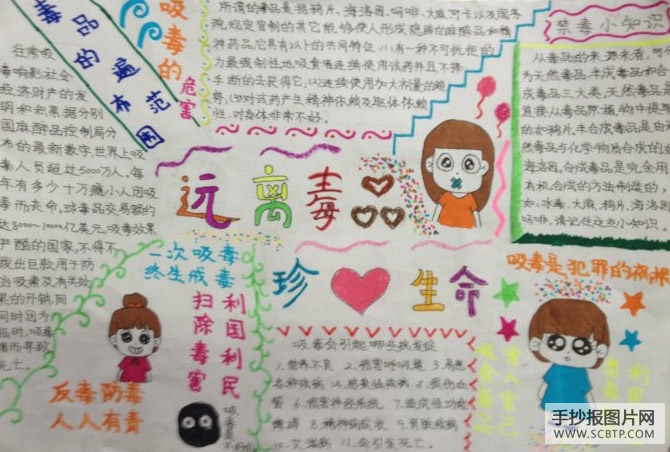 毒品的遍布范围
吸毒的
危害
所谓的毒品是指鸦片、海洛因、吗啡、大麻、可卡以及国务
院规定管制的其它能够使人形成瘾癖的麻醉品和精
神药品,它具有以下的共同特征:(1)有一种不可抗拒的
力量强制性地吸食者连续使用该药并且不择
手断的去获得它,(2)连续使用加大剂量的趋
势,(3)对该药产生精神依赖及躯体依赖
性,对身体非常不好。
禁毒小知识
从毒品的来源来看,
为天然毒品、半成毒品和合
成毒品三大类,天然毒品是
直接从毒品原植物中提取
的如鸦片,半合成毒品是由天
然毒品与化学物质合成的如
海洛因,合成毒品是完全用
有机合成的方法制造的
如:冰毒、大麻、鸦片、海洛因
吗啡,请记住这些小知识。
在常吸
毒响影社会
经济财产的发
国麻醉品控制局分
布的最新数字,世界上吸
毒人员超过5000万人,每
年有多少十万瘾小人因吸
毒而丧命,球毒品交易额约
达8000~10000亿美元,吸毒效果
严酷的国家,不得不
拨出巨款用于防
治吸毒及有关效
果的开销,同
时因为
临时,吸毒
而导致
死亡。
远离毒
珍❤生命
一次吸毒
终生戒毒
利国利民
扫除毒害
反毒防毒
人人有责
吸毒会引起哪些病发症
1.营养不良 2.损害呼吸道 3.易患
各种疾病 4.感染性疾病 5.损伤血
管 6.损害神经系统 7.造成性功能
障碍 8.精神病症状 9.肾脏疾病
10.艾滋病 11.会引会死亡。
吸毒是犯罪的祸根
害人害己
吸食毒品
利民
手抄报图片网
WWW.SCBTP.COM